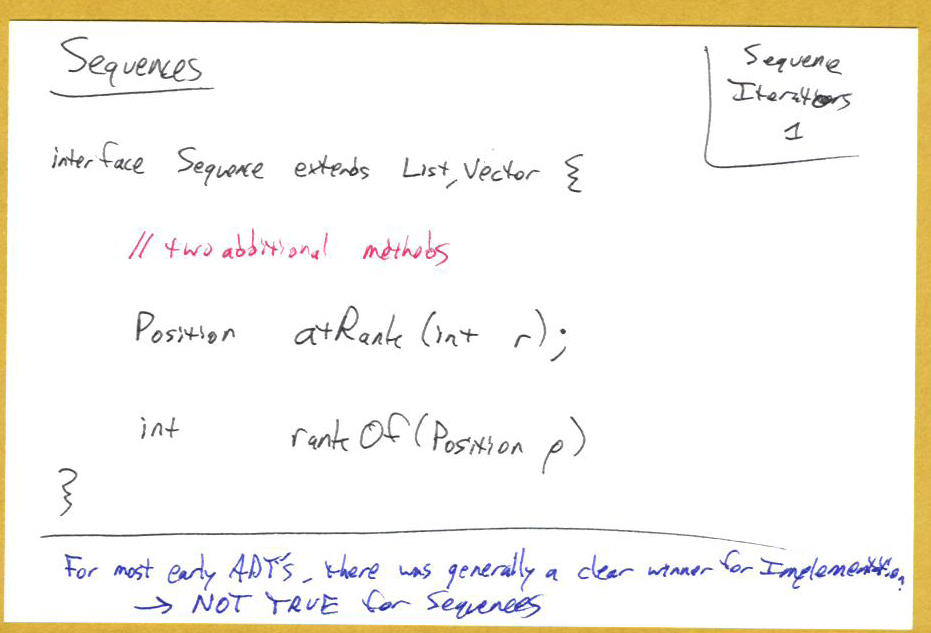 Sequences
Sequene
Iterators
1
interface Sequence extends List, Vector {
// two additional methods
Position atRank (int r);
int rankOf (Position p)
}
For most early ADT's, there was generally a clear winner for Implementation,
→ NOT TRUE for Sequences